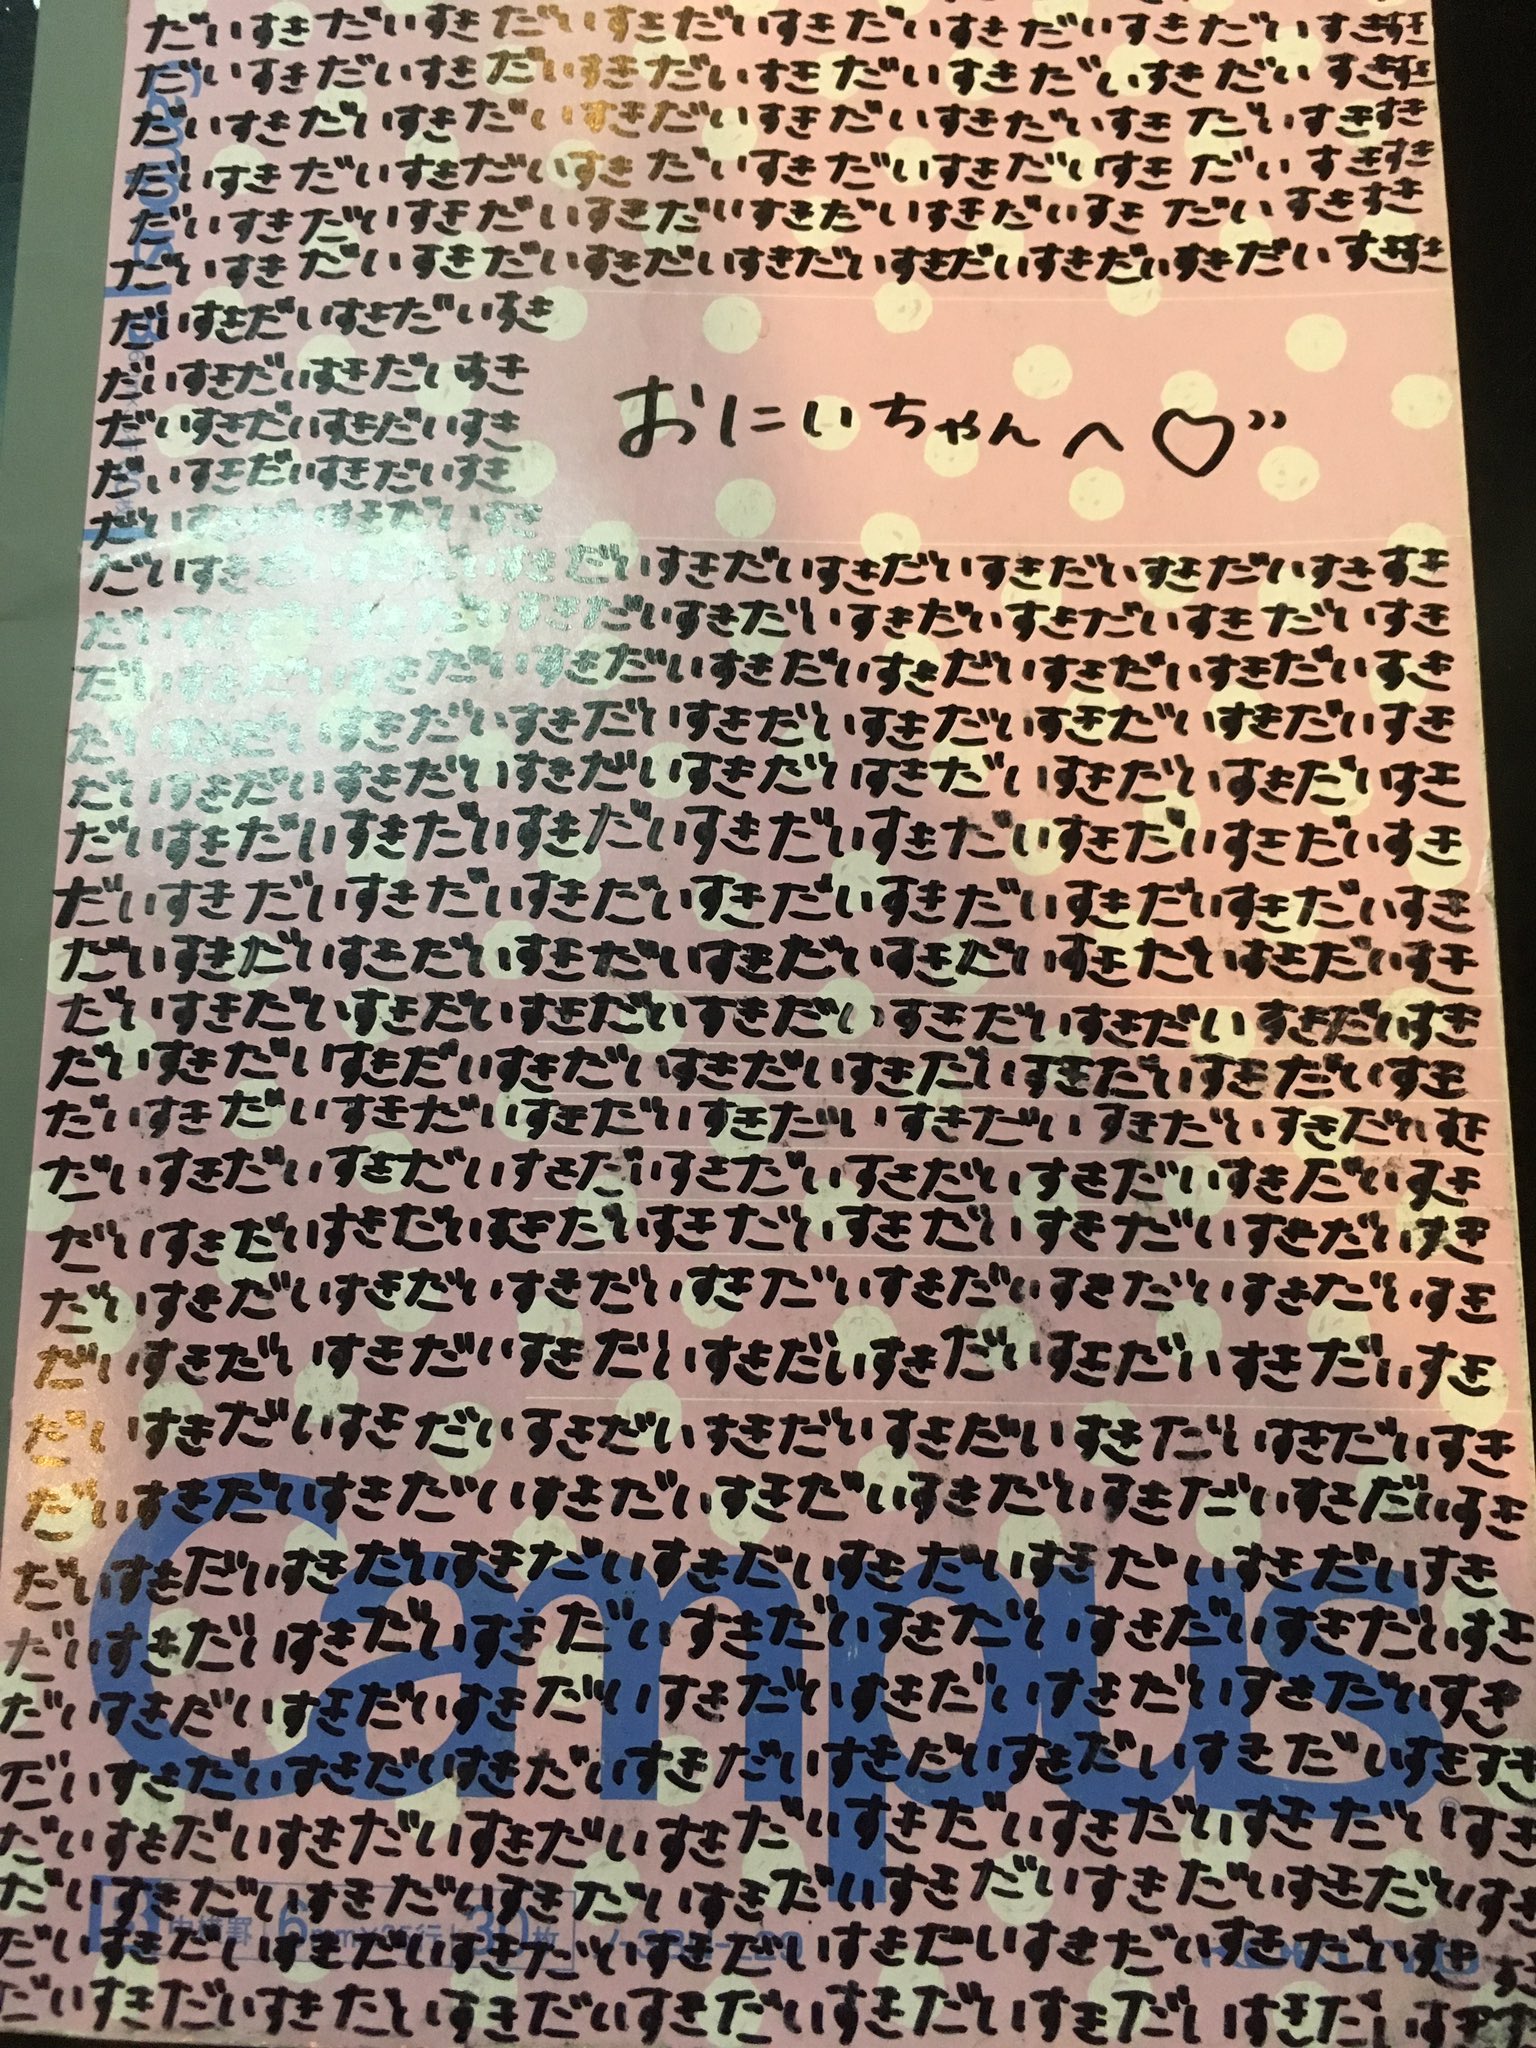 だいすきだいすきだいすきだいすきだいすきだいすきだいすきすき
だいすきだいすきだいすきだいすきだいすきだいすきだいすきすき
だいすきだいすきだいすきだいすきだいすきだいすきだいすきすき
だいすきだいすきだいすきだいすきだいすきだいすきだいすきすき
だいすきだいすきだいすきだいすきだいすきだいすきだいすきすき
だいすきだいすきだいすきだいすきだいすきだいすきだいすきだいすきすき
だいすきだいすきだいすき
だいすきだいすきだいすき
だいすきだいすきだいすき
だいすきだいすきだいすき
だいすきだいすきだいすき
おにいちゃんへ♡
だいすきだいすきだいすきだいすきだいすきだいすきだいすきだいすきすき
だいすきだいすきだいすきだいすきだいすきだいすきだいすきだいすき
だいすきだいすきだいすきだいすきだいすきだいすきだいすきだいすき
だいすきだいすきだいすきだいすきだいすきだいすきだいすきだいすき
だいすきだいすきだいすきだいすきだいすきだいすきだいすきだいすき
だいすきだいすきだいすきだいすきだいすきだいすきだいすきだいすき
だいすきだいすきだいすきだいすきだいすきだいすきだいすきだいすき
だいすきだいすきだいすきだいすきだいすきだいすきだいすきだいすき
だいすきだいすきだいすきだいすきだいすきだいすきだいすきだいすき
だいすきだいすきだいすきだいすきだいすきだいすきだいすきだいすき
だいすきだいすきだいすきだいすきだいすきだいすきだいすきだいすき
だいすきだいすきだいすきだいすきだいすきだいすきだいすきだいすき
だいすきだいすきだいすきだいすきだいすきだいすきだいすきだいすき
だいすきだいすきだいすきだいすきだいすきだいすきだいすきだいすき
だいすきだいすきだいすきだいすきだいすきだいすきだいすきだいすき
だいすきだいすきだいすきだいすきだいすきだいすきだいすきだいすき
だいすきだいすきだいすきだいすきだいすきだいすきだいすきだいすき
だいすきだいすきだいすきだいすきだいすきだいすきだいすきだいすき
だいすきだいすきだいすきだいすきだいすきだいすきだいすきだいすき
だいすきだいすきだいすきだいすきだいすきだいすきだいすきだいすき
だいすきだいすきだいすきだいすきだいすきだいすきだいすきだいすきすき
だいすきだいすきだいすきだいすきだいすきだいすきだいすきだいすき
だいすきだいすきだいすきだいすきだいすきだいすきだいすきだいすき
だいすきだいすきだいすきだいすきだいすきだいすきだいすきだいすき
だいすきだいすきだいすきだいすきだいすきだいすきだいすきだいすき
Campus